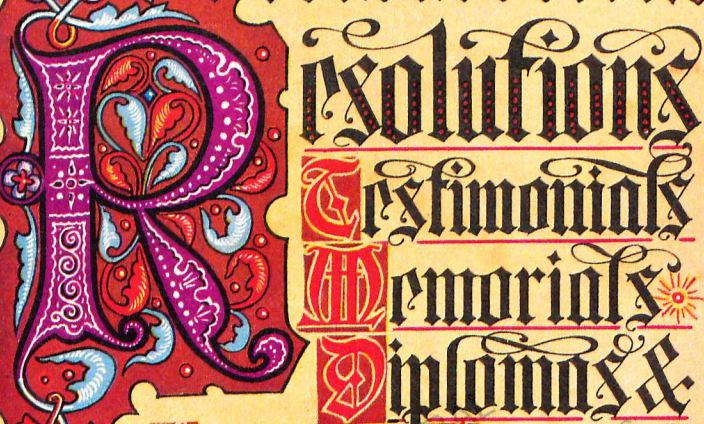 Resolutions
Testimonials
Memorials
Diplomas &